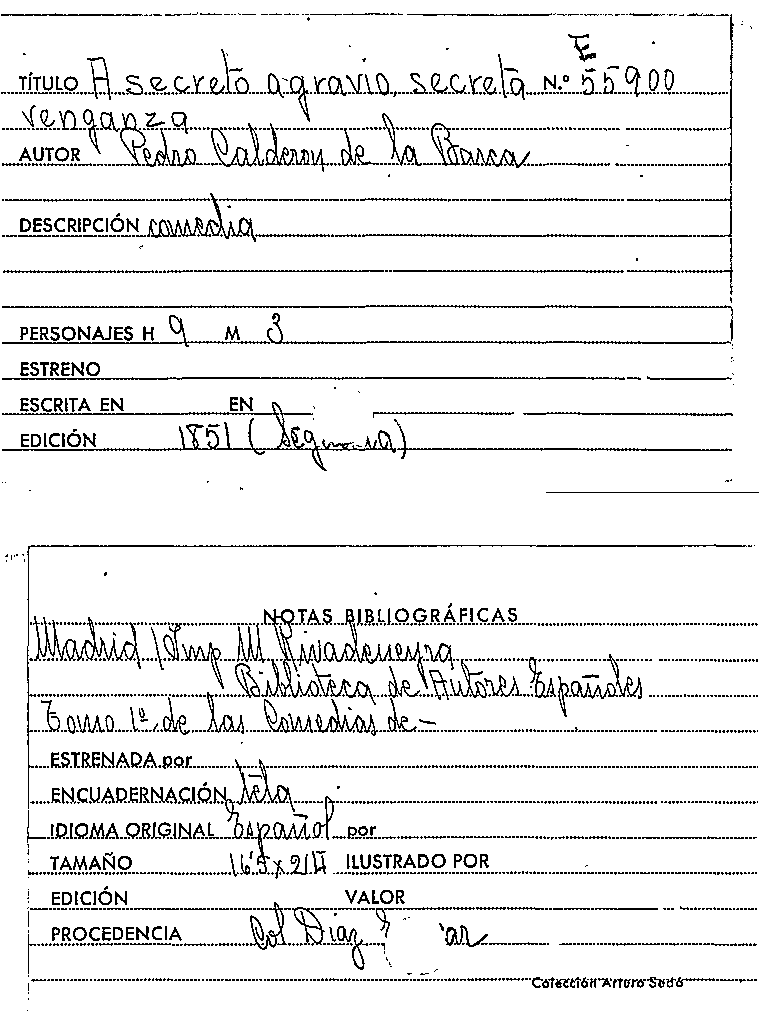 E
TÍTULO A secreto agravio, secreta N.º 55900
venganza
AUTOR Pedro Calderon de la Barca
DESCRIPCIÓN comedia
PERSONAJES H 9 M 3
ESTRENO
ESCRITA EN EN
EDICIÓN 1851 (
NOTAS BIBLIOGRÁFICAS
Madrid / Imp M Rivadeneyra
Biblioteca de Autores Españoles
Tomo 1º de las Comedias de-
ESTRENADA por
ENCUADERNACIÓN tela
IDIOMA ORIGINAL Español por
TAMAÑO ILUSTRADO POR
EDICIÓN VALOR
PROCEDENCIA Col Diaz
Colección Arturo Sedó